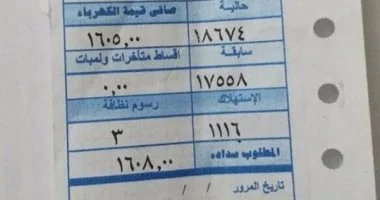 حالية صافى قيمة الكهرباء
١٨٦٧٤ ١٦٠٥,٠٠
سابقة اقساط متأخرات ولمبات
١٧٥٥٨ ٠,٠٠
الإستهلاك رسوم نظافة
١١١٦ ٣
المطلوب سداده ١٦٠٨,٠٠
تاريخ المرور / /